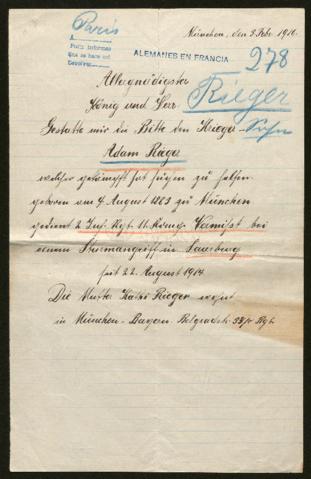 Paris
A
Para informes
que se hace en
ALEMANES EN FRANCIA
München, den 3. Feb. 1916.
278
Allergnädigster
König und Herr
Rieger
Gestatte mir die Bitte den Krieger
Adam Rieger
welcher gekämpft hat zu helfen
geboren am 9. August 1883 zu München
gedient 2. Inf. Rgt. 11. Komp. Vermißt bei
einem Sturmangriff in Saarburg
seit 22. August 1914
Die Mutter Käthi Rieger wohnt
in München - Bayern. Belgradstr.